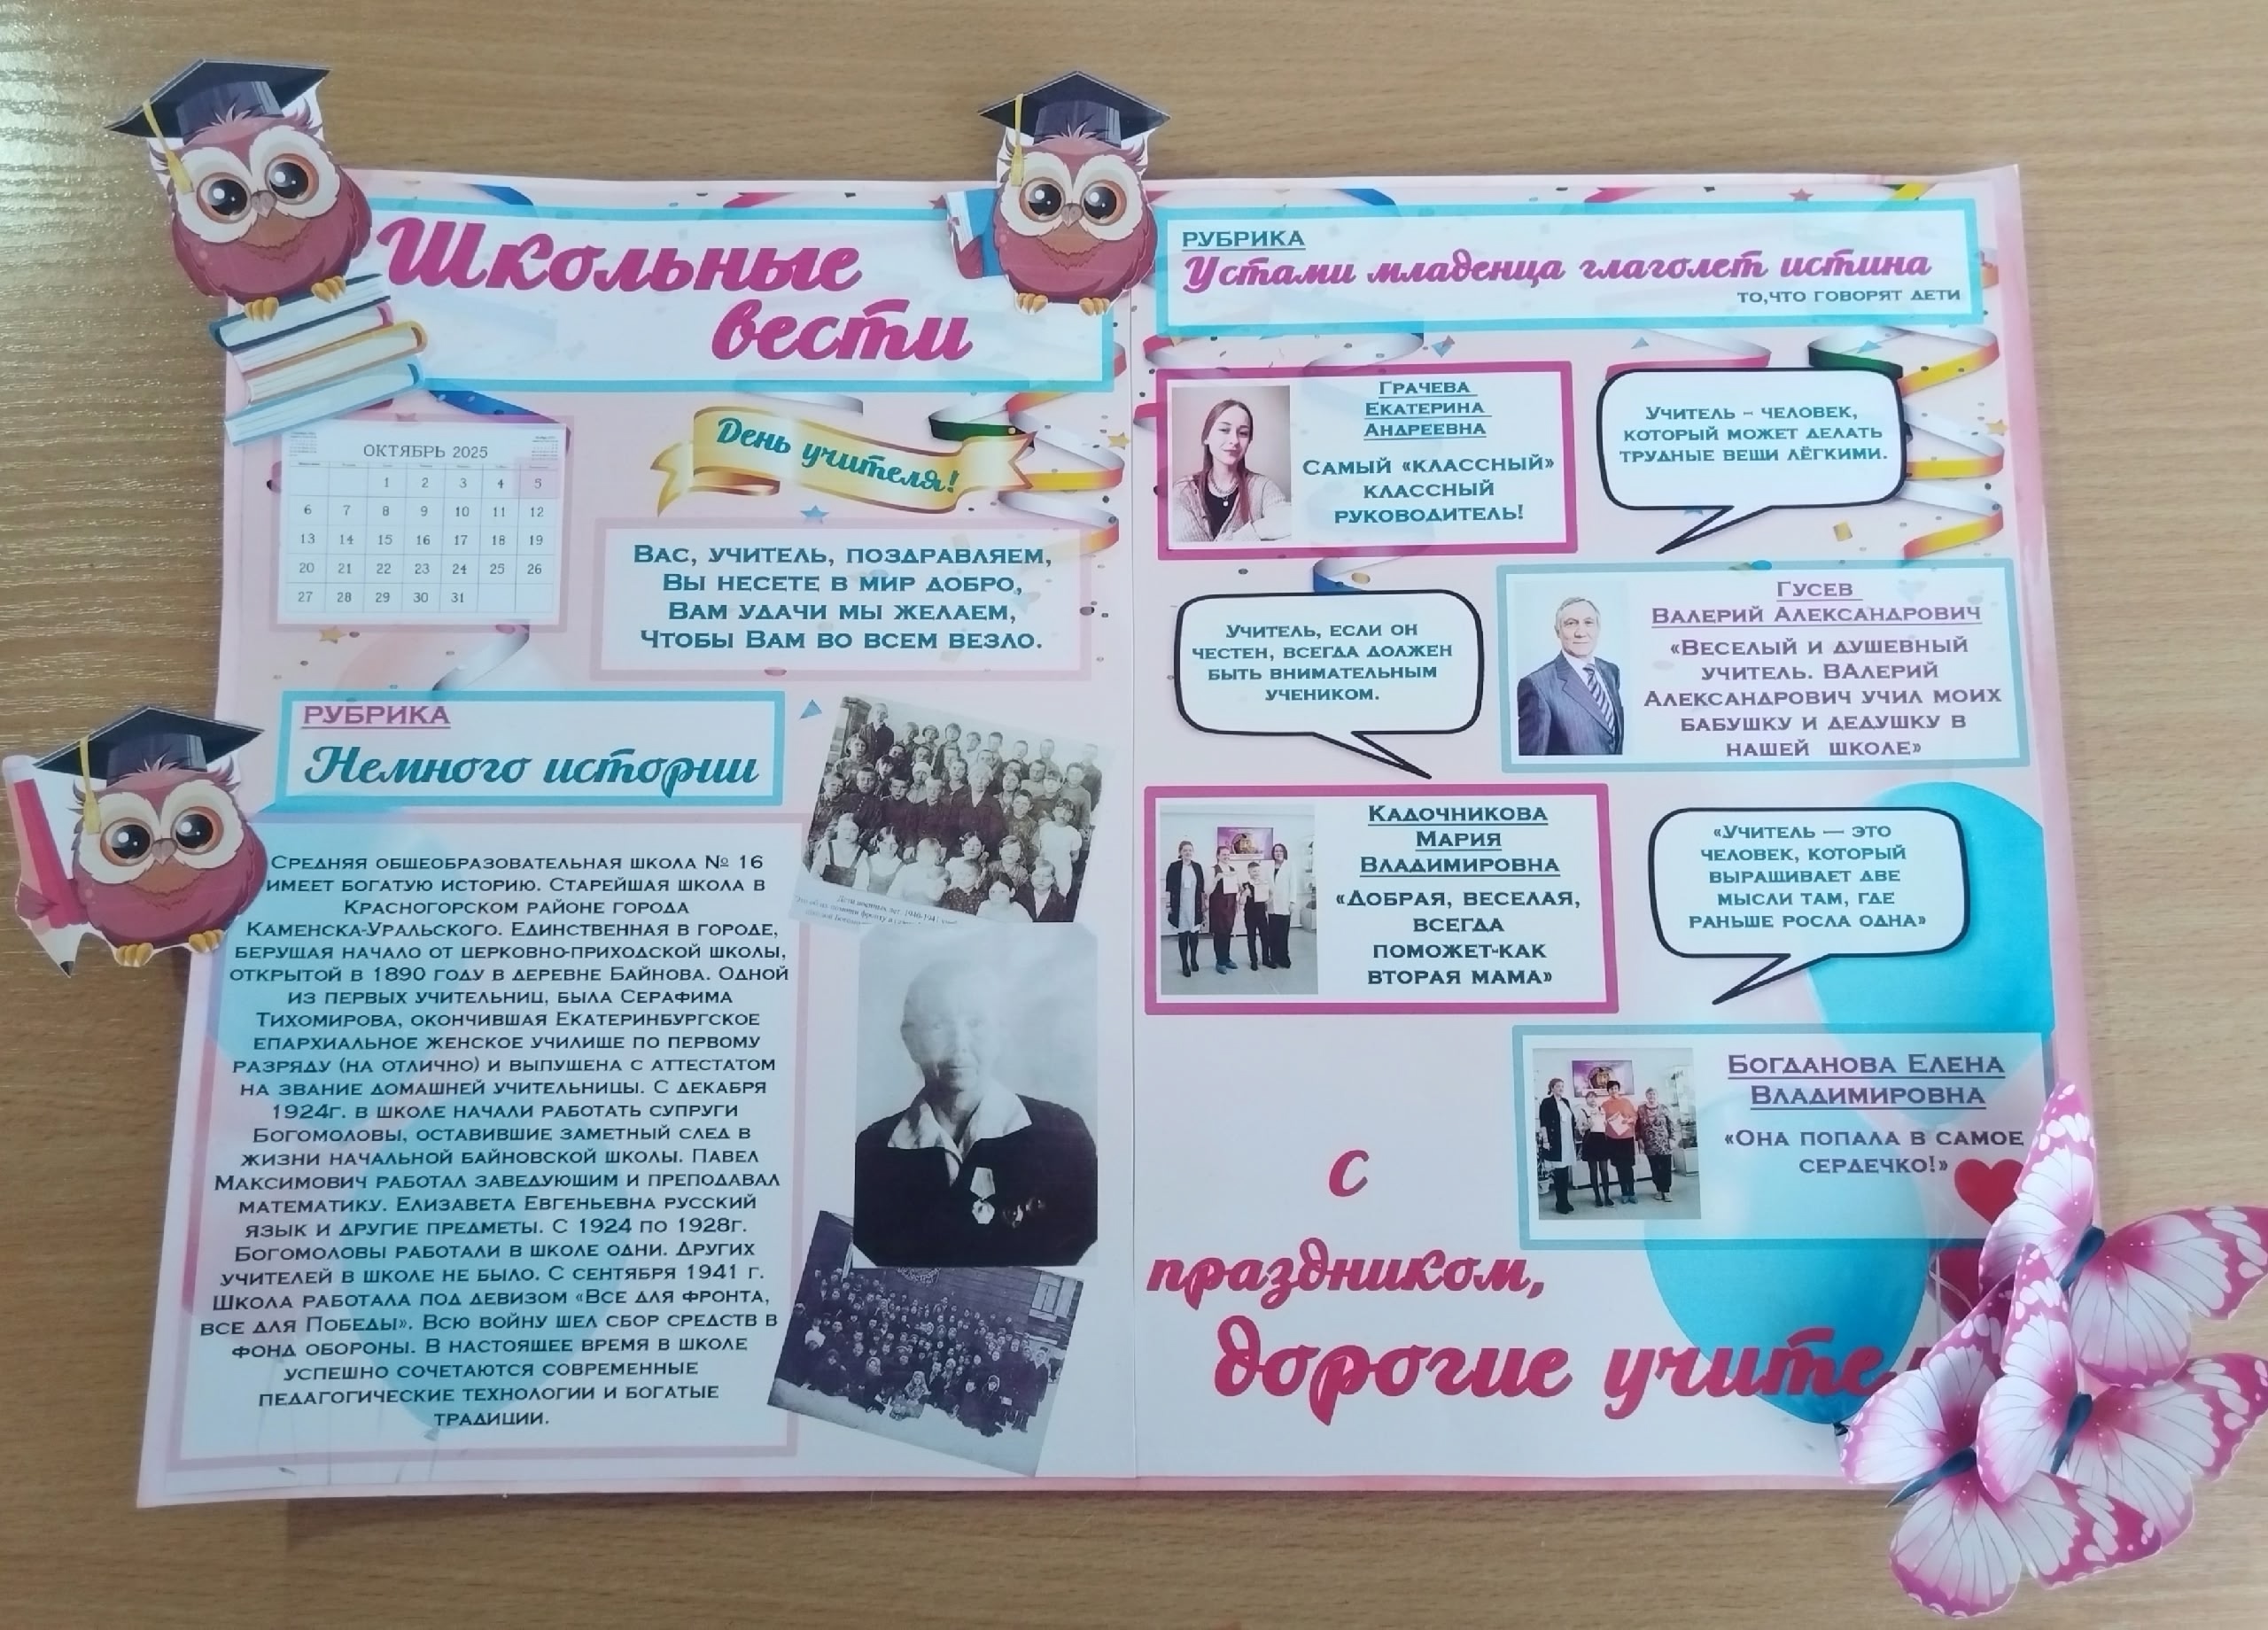 Школьные
вести
ОКТЯБРЬ 2025
1 2 3 4 5
6 7 8 9 10 11 12
13 14 15 16 17 18 19
20 21 22 23 24 25 26
27 28 29 30 31
День учителя!
Вас, учитель, поздравляем,
Вы несете в мир добро,
Вам удачи мы желаем,
Чтобы Вам во всем везло.
РУБРИКА
Немного истории
Средняя общеобразовательная школа № 16
имеет богатую историю. Старейшая школа в
Красногорском районе города
Каменска-Уральского. Единственная в городе,
берущая начало от церковно-приходской школы,
открытой в 1890 году в деревне Байнова. Одной
из первых учительниц, была Серафима
Тихомирова, окончившая Екатеринбургское
епархиальное женское училище по первому
разряду (на отлично) и выпущена с аттестатом
на звание домашней учительницы. С декабря
1924г. в школе начали работать супруги
Богомоловы, оставившие заметный след в
жизни начальной Байновской школы. Павел
Максимович работал заведующим и преподавал
математику. Елизавета Евгеньевна русский
язык и другие предметы. С 1924 по 1928г.
Богомоловы работали в школе одни. Других
учителей в школе не было. С сентября 1941 г.
Школа работала под девизом «Все для фронта,
все для Победы». Всю войну шел сбор средств в
фонд обороны. В настоящее время в школе
успешно сочетаются современные
педагогические технологии и богатые
традиции.
Дети военных лет. 1940-1941
РУБРИКА
Устами младенца глаголет истина
то,что говорят дети
Грачева
Екатерина
Андреевна
Самый «классный»
классный
руководитель!
Учитель - человек,
который может делать
трудные вещи лёгкими.
Учитель, если он
честен, всегда должен
быть внимательным
учеником.
Гусев
Валерий Александрович
«Веселый и душевный
учитель. ВАлерий
Александрович учил моих
бабушку и дедушку в
нашей школе»
Кадочникова
Мария
Владимировна
«Добрая, веселая,
всегда
поможет-как
вторая мама»
«Учитель — это
человек, который
выращивает две
мысли там, где
раньше росла одна»
Богданова Елена
Владимировна
«Она попала в самое
сердечко!»
С
праздником,
дорогие учите